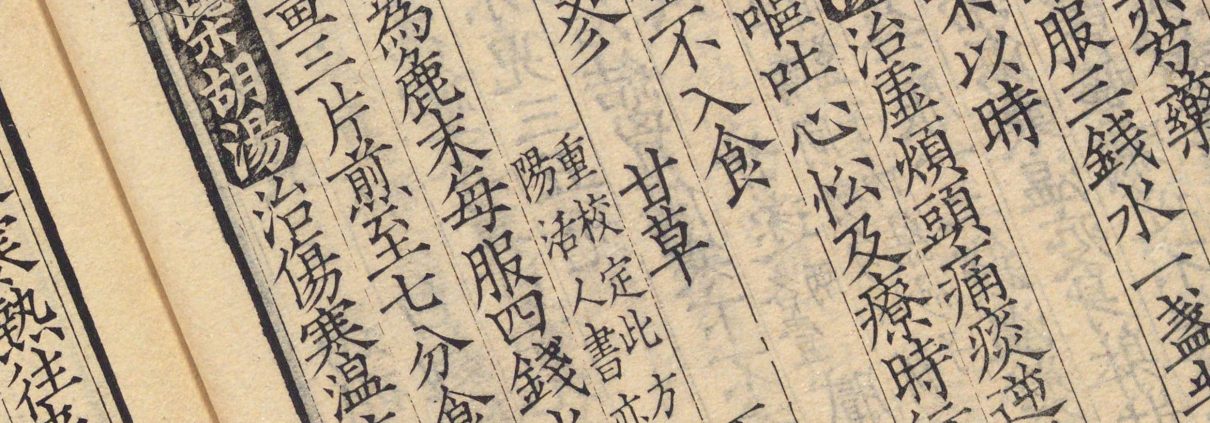 芍藥
服三錢水一盞半
不以時
治虛煩頭痛痰逆
嘔吐心忪及療時
不入食
參　甘草
重校定此方
陽活人書亦
為麁末每服四錢水
三片煎至七分食
柴胡湯治傷寒温
熱往